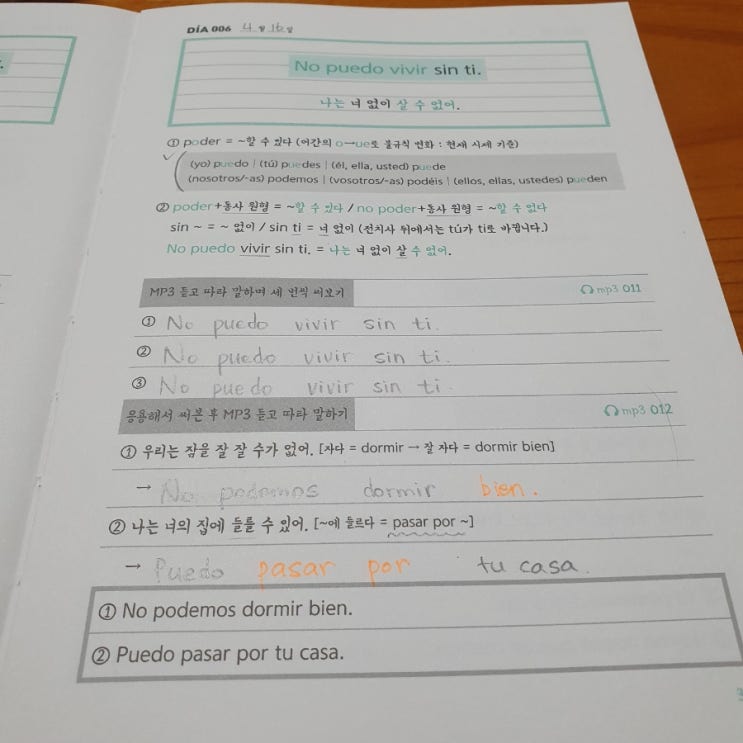 DÍA 006 4월 16일
No puedo vivir sin ti.
나는 너 없이 살 수 없어.
① poder = ~할 수 있다 (어간의 o→ue로 불규칙 변화 : 현재 시제 기준)
(yo) puedo | (tú) puedes | (él, ella, usted) puede
(nosotros/-as) podemos | (vosotros/-as) podéis | (ellos, ellas, ustedes) pueden
② poder+동사 원형 = ~할 수 있다 / no poder+동사 원형 = ~할 수 없다
sin ~ = ~ 없이 / sin ti = 너 없이 (전치사 뒤에서는 tú가 ti로 바뀝니다.)
No puedo vivir sin ti. = 나는 너 없이 살 수 없어.
MP3 듣고 따라 말하며 세 번씩 써보기 mp3 011
① No puedo vivir sin ti.
② No puedo vivir sin ti.
③ No puedo vivir sin ti.
응용해서 써본 후 MP3 듣고 따라 말하기 mp3 012
① 우리는 잠을 잘 잘 수가 없어. [자다 = dormir → 잘 자다 = dormir bien]
→ No podemos dormir bien.
② 나는 너의 집에 들를 수 있어. [~에 들르다 = pasar por ~]
→ Puedo pasar por tu casa.
① No podemos dormir bien.
② Puedo pasar por tu casa.